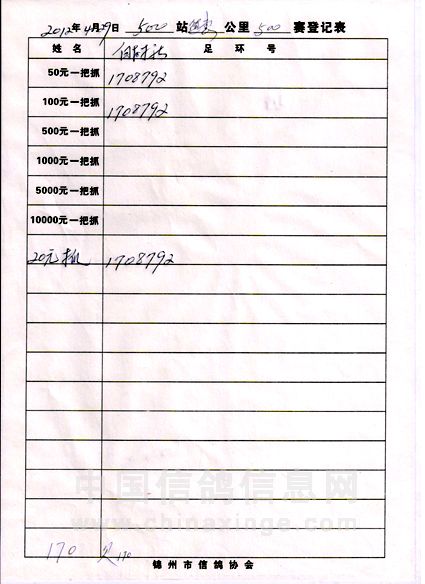 2012年4月29日 500 站 公里 500 赛登记表
姓名 足环号
50元一把抓 1708792
100元一把抓 1708792
500元一把抓
1000元一把抓
5000元一把抓
10000元一把抓
20元 1708792
中国信鸽信息网
www.chinaxinge.com
170 170
锦州市信鸽协会